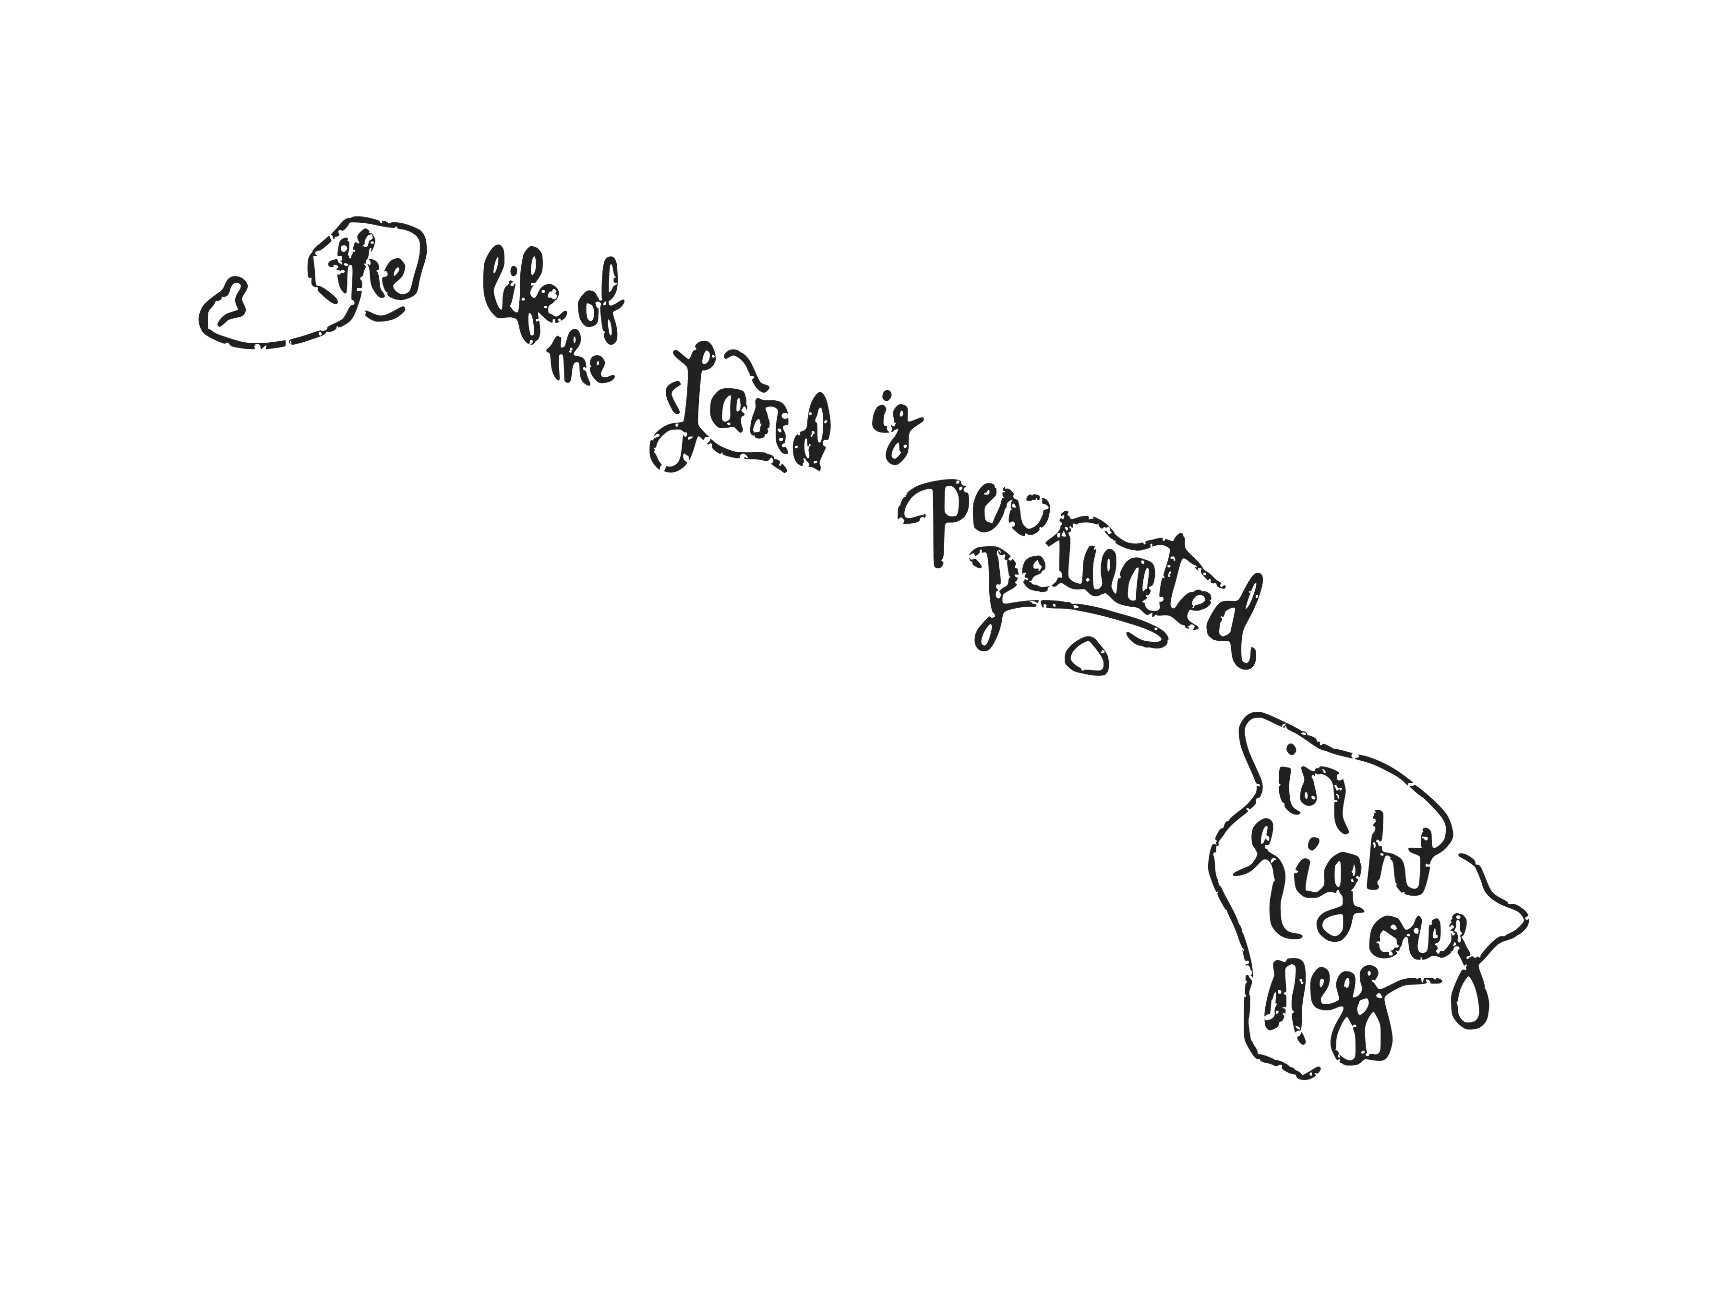 the
life of
the
Land
is
per
petuated
in
right
ous
ness